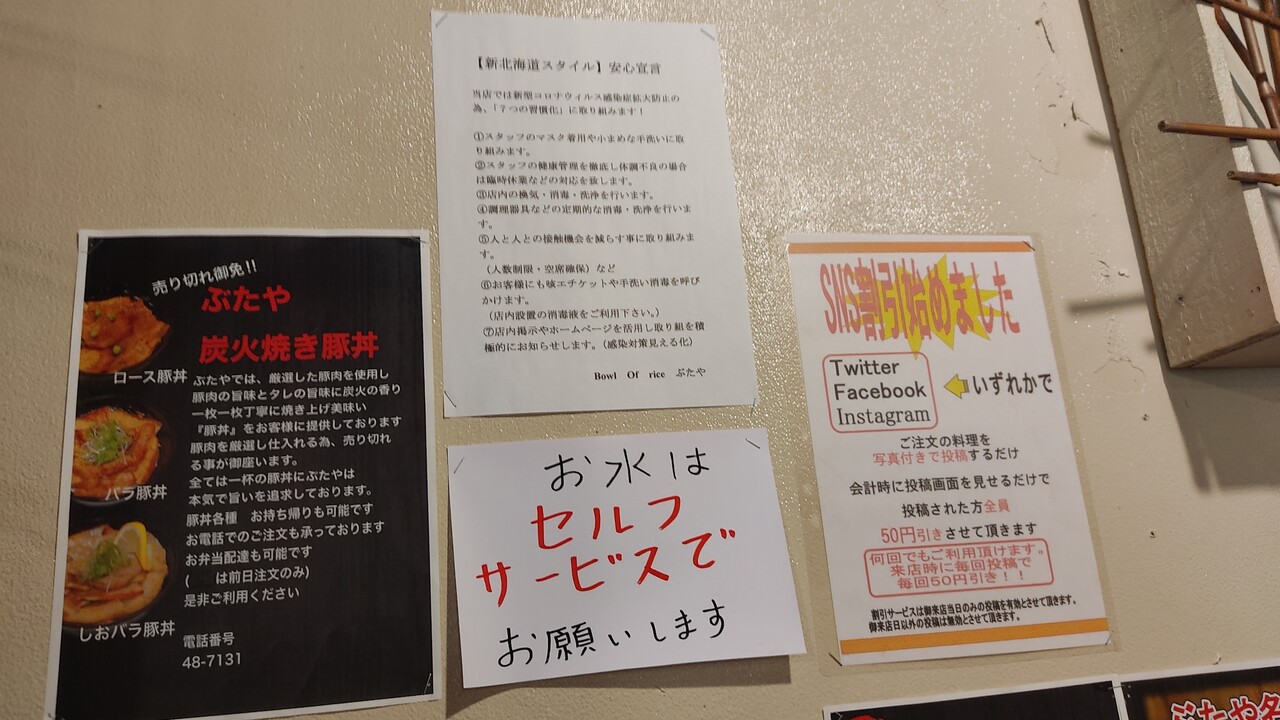 売り切れ御免!!
ぶたや
炭火焼き豚丼
ロース豚丼
バラ豚丼
しおバラ豚丼
ぶたやでは、厳選した豚肉を使用し
豚肉の旨味とタレの旨味に炭火の香り
一枚一枚丁寧に焼き上げ美味い
『豚丼』をお客様に提供しております
豚肉を厳選し仕入れる為、売り切れ
る事が御座います。
全ては一杯の豚丼にぶたやは
本気で旨いを追求しております。
豚丼各種 お持ち帰りも可能です
お電話でのご注文も承っております
お弁当配達も可能です
( は前日注文のみ)
是非ご利用ください
電話番号
48-7131
【新北海道スタイル】安心宣言
当店では新型コロナウィルス感染症拡大防止の
為、「7つの習慣化」に取り組みます!
①スタッフのマスク着用や小まめな手洗いに取
り組みます。
②スタッフの健康管理を徹底し体調不良の場合
は臨時休業などの対応を致します。
③店内の換気・消毒・洗浄を行います。
④調理器具などの定期的な消毒・洗浄を行いま
す。
⑤人と人との接触機会を減らす事に取り組みま
す。
(人数制限・空席確保)など
⑥お客様にも咳エチケットや手洗い消毒を呼び
かけます。
(店内設置の消毒液をご利用下さい。)
⑦店内掲示やホームページを活用し取り組を積
極的にお知らせします。(感染対策見える化)
Bowl Of rice ぶたや
お水は
セルフ
サービスで
お願いします
SNS割引始めました
Twitter
Facebook
Instagram
いずれかで
ご注文の料理を
写真付きで投稿するだけ
会計時に投稿画面を見せるだけで
投稿された方全員
50円引きさせて頂きます
何回でもご利用頂けます。
来店時に毎回投稿で
毎回50円引き!!
割引サービスは御来店当日のみの投稿を有効とさせて頂きます。
御来店日以外の投稿は無効とさせて頂きます。
ぶたや名